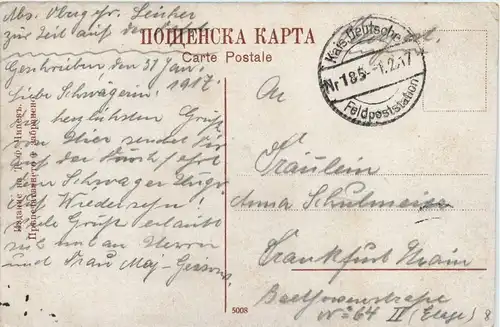 Abs. Vbrg fr.
zur Zeit auf der
ПОЩЕНСКА КАРТА
Carte Postale
Kais. Deutsche
Nr 185 -1.2.17
Feldpoststation
Geschrieben den 31 Jan.
1917.
Liebe Schwägerin!
herzlichsten Grüße
von hier sendet
auf der Durchfahrt
Schwager Hugo
auf Wiedersehn!
viele Grüße erlaubt
sich an Herrn
und Frau
Издание на
An
Fräulein
Anna Schulmeister
Frankfurt Main
Beethovenstraße
№ 64 II (Etage)
5008
8